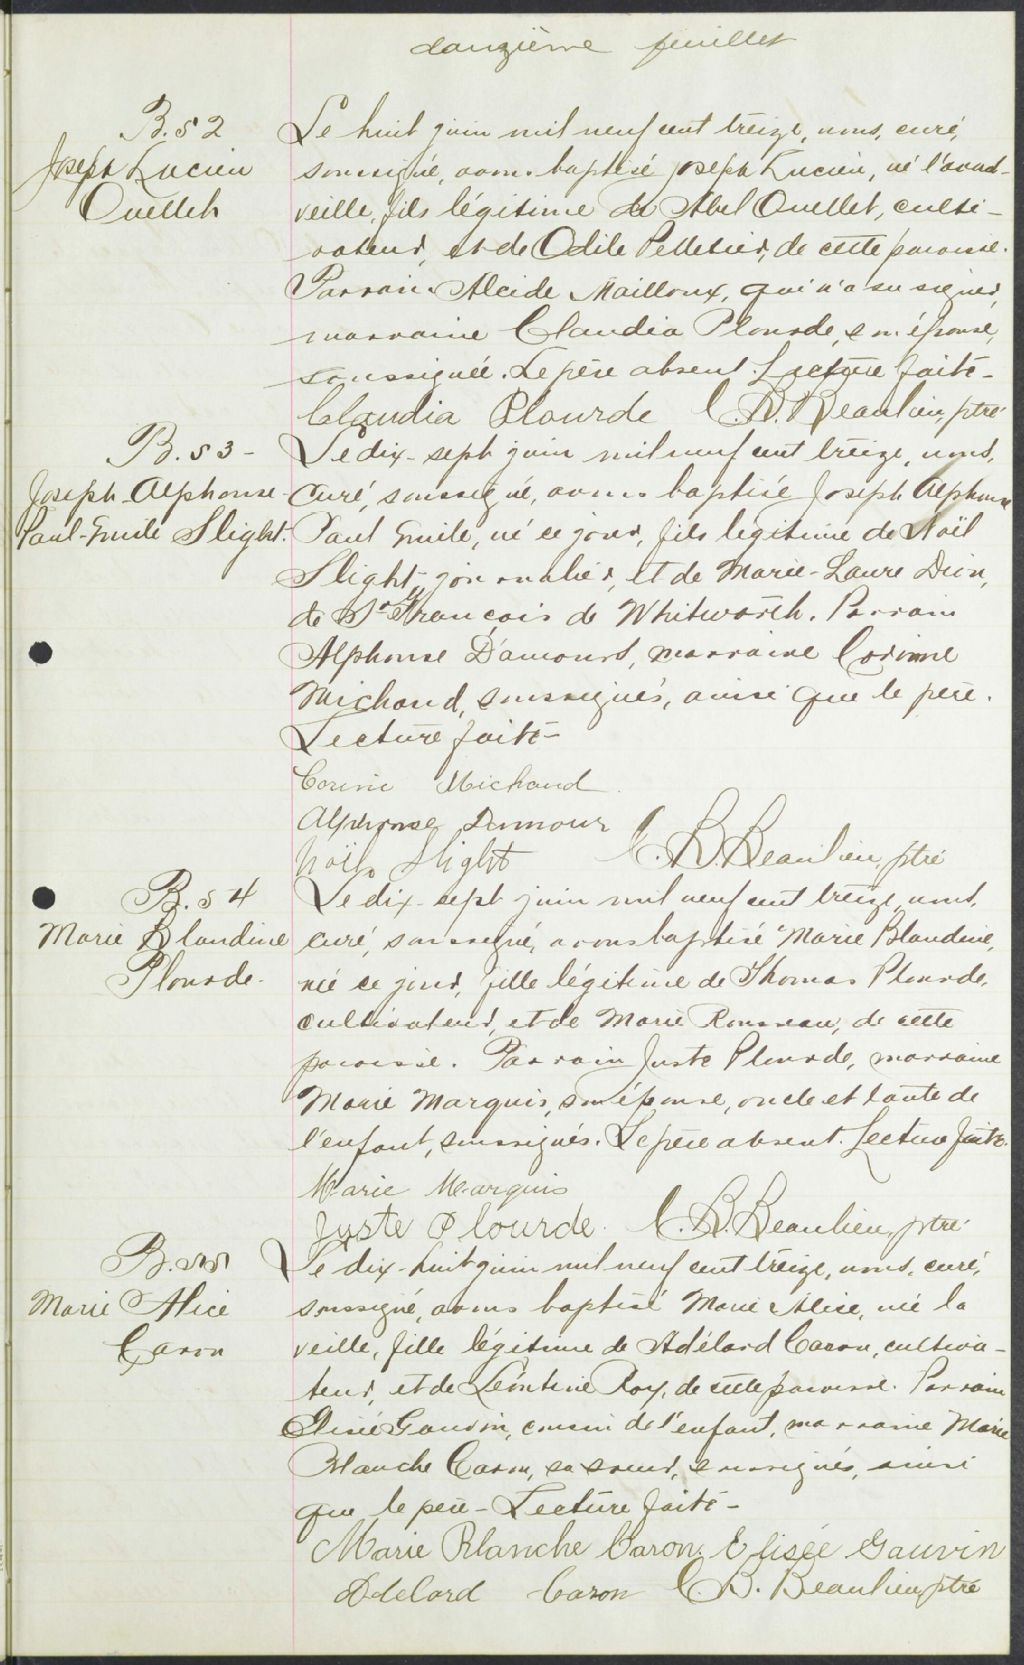 douzième feuillet
B. 52
Joseph Lucien
Ouellet
Le huit juin mil neuf cent treize, nous, curé,
soussigné, avons baptisé Joseph Lucien, né l'avant-
veille, fils légitime de Abel Ouellet, culti-
vateur, et de Odile Pelletier, de cette paroisse.
Parrain Alcide Mailloux, qui n'a su signer,
marraine Claudia Plourde, son épouse,
soussignée. Le père absent. Lecture faite -
Claudia Plourde C. B. Beaulieu, ptre
B. 53 -
Joseph Alphonse
Paul-Emile Slight.
Le dix-sept juin mil neuf cent treize, nous,
curé, soussigné, avons baptisé Joseph Alphonse
Paul Emile, né ce jour, fils légitime de Noïl
Slight, journalier, et de Marie-Laure Dion,
de St François de Whitworth. Parrain
Alphonse D'amours, marraine Corinne
Michaud, soussignés, ainsi que le père.
Lecture faite -
Corine Michaud
Alphonse Dumour
Noïl Slight C. B. Beaulieu, ptre
B. 54
Marie Blandine
Plourde.
Le dix-sept juin mil neuf cent treize, nous,
curé, soussigné, avons baptisé Marie Blandine,
née ce jour, fille légitime de Thomas Plourde,
cultivateur, et de Marie Rousseau, de cette
paroisse. Parrain Juste Plourde, marraine
Marie Marquis, son épouse, oncle et tante de
l'enfant, soussignés. Le père absent. Lecture faite.
Marie Marquis
Juste Plourde. C. B. Beaulieu, ptre
B. 55
Marie Alice
Caron
Le dix-huit juin mil neuf cent treize, nous, curé,
soussigné, avons baptisé Marie Alice, née la
veille, fille légitime de Adélard Caron, cultiva-
teur, et de Léontine Roy, de cette paroisse. Parrain
Elisée Gauvin, cousin de l'enfant, marraine Marie
Blanche Caron, sa soeur, soussignés, ainsi
que le père - Lecture faite -
Marie Blanche Caron. Elisée Gauvin
Adelard Caron C. B. Beaulieu, ptre